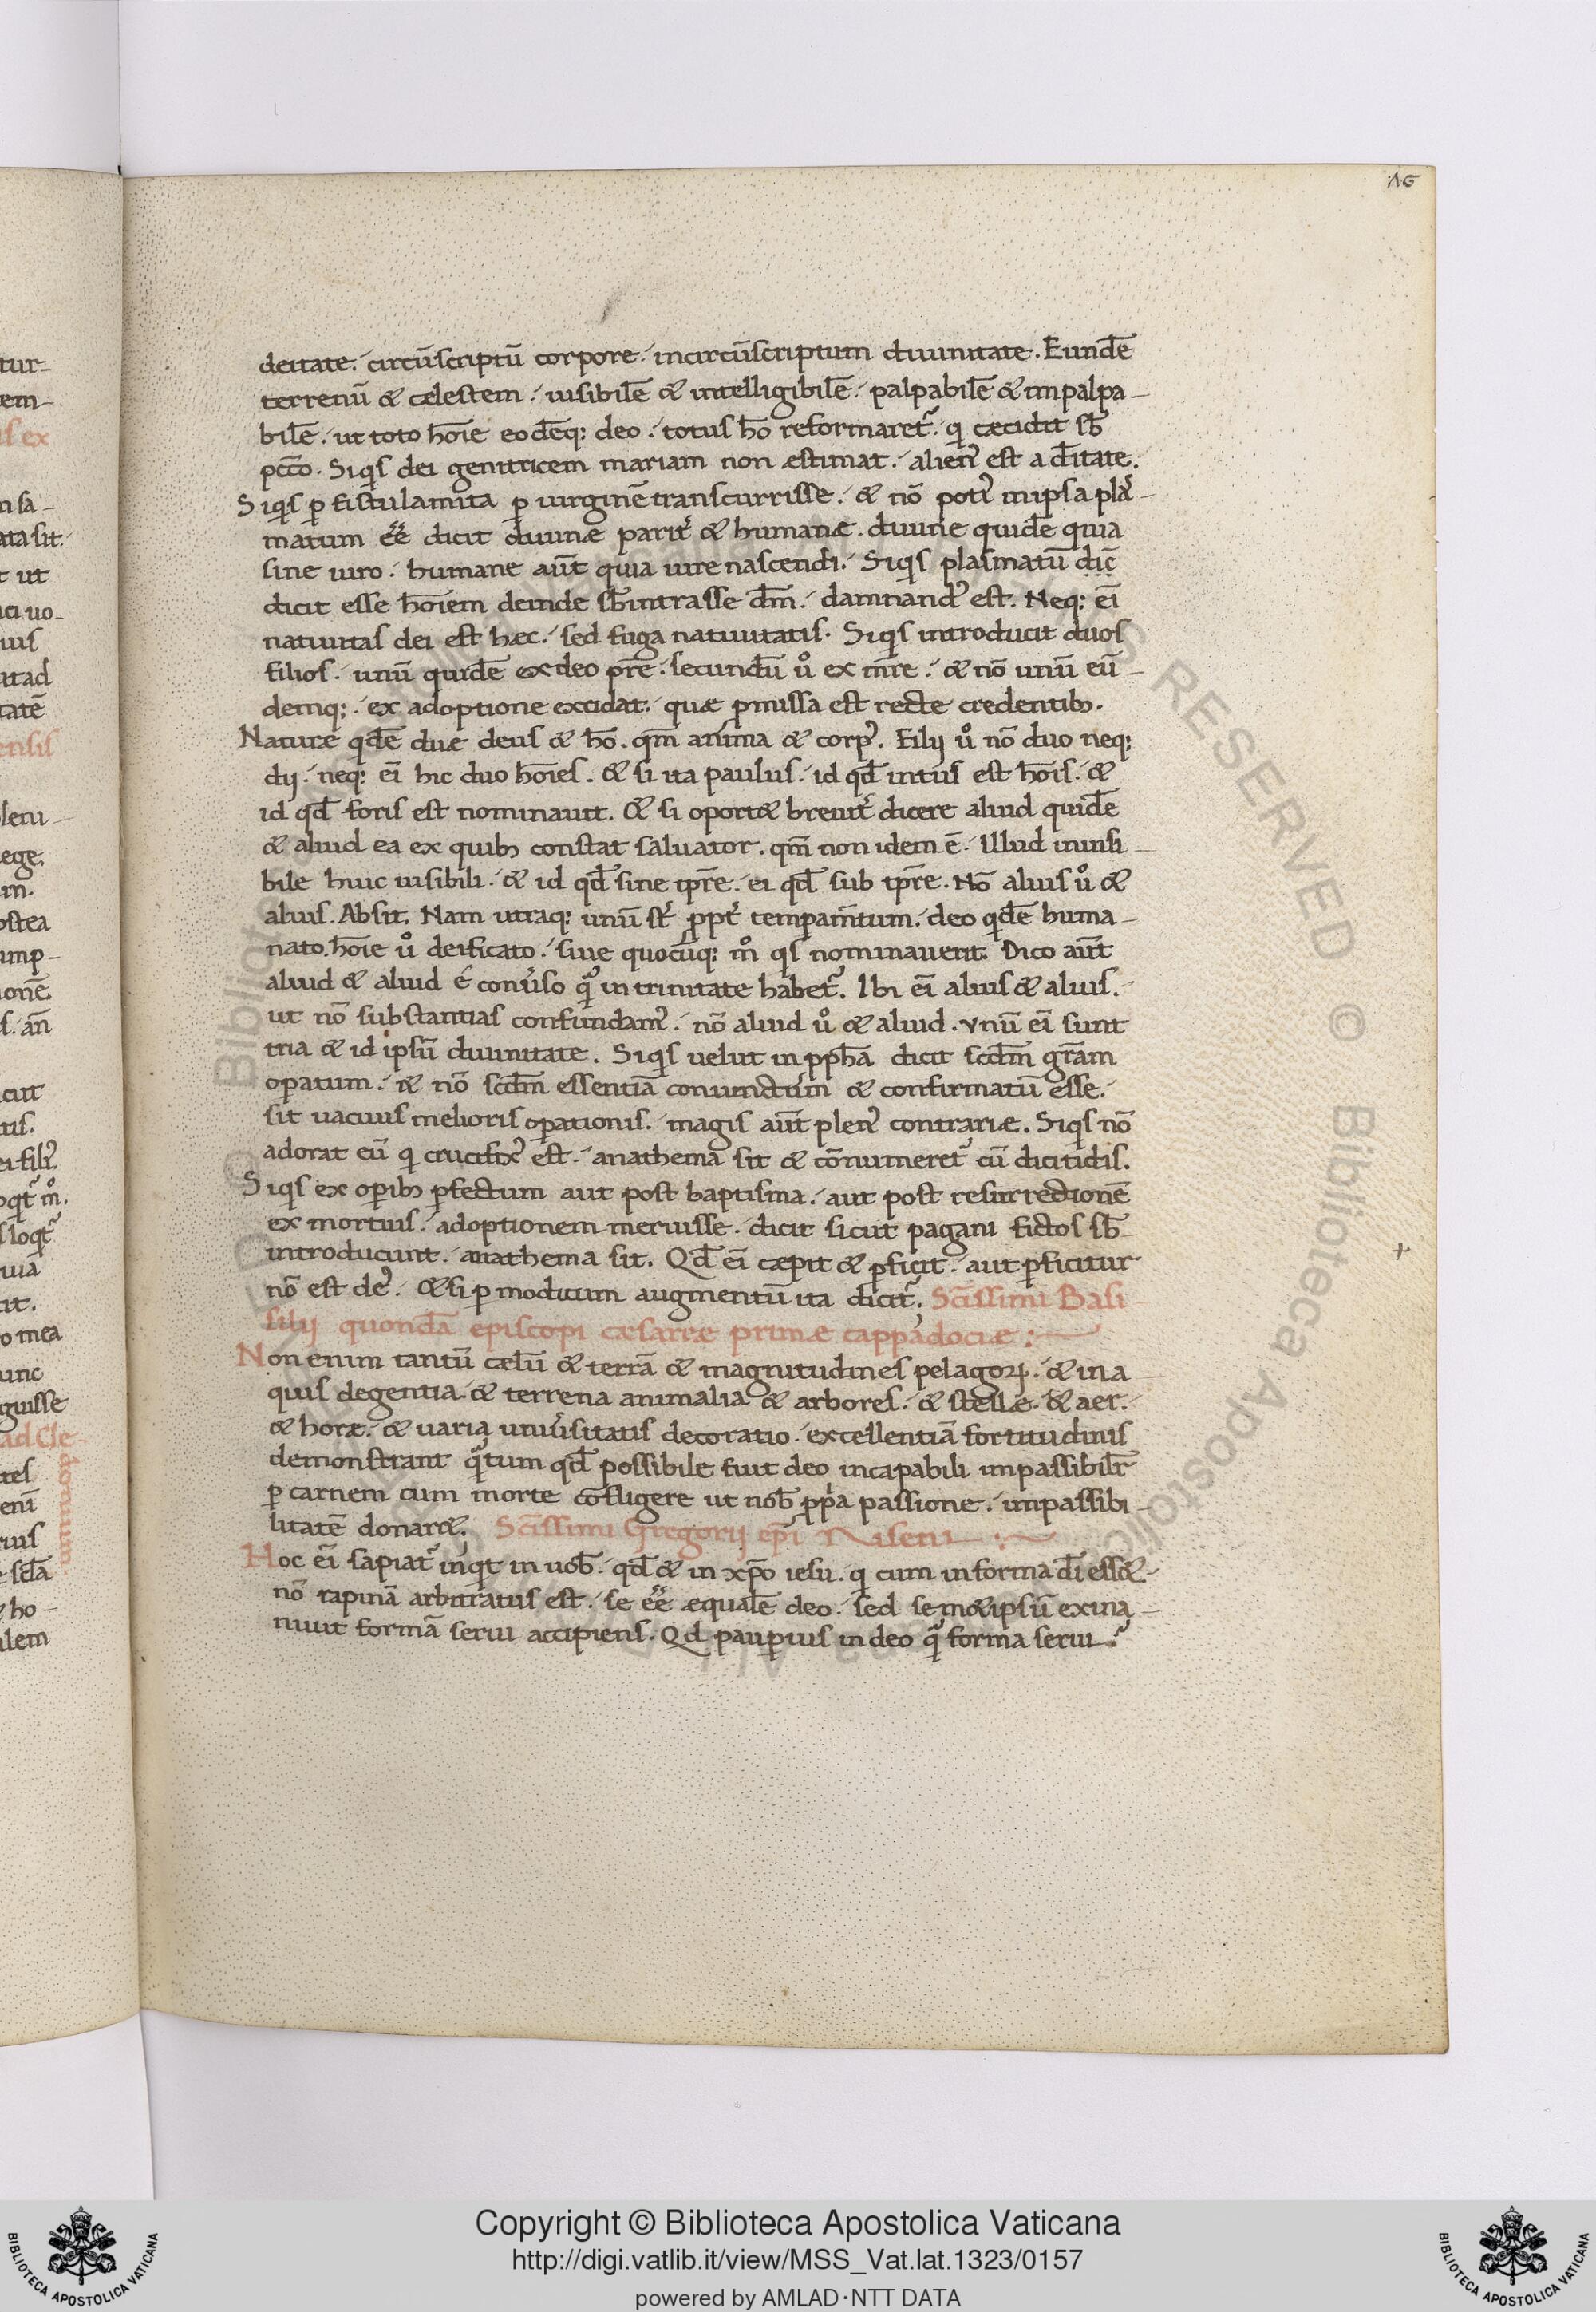 ΛϾ
deitate. circūscriptū corpore. incircūscriptum diuinitate. Eundē
terrenū & cælestem. uisibilē & intelligibilē. palpabilē & impalpa-
bilē. ut toto hōie eodēq; deo. totus hō reformaret᷑. qi cæcidit sb̄
pcc̄o. Siqis dei genitricem mariam non æstimat. alien᷒ est a dēitate.
Siqis p̱ fistulam ita p̱ uirginē transcurrisse. & nō poti᷒ in ipsa plas-
matum ēē dicit diuinæ parit᷑ & humanæ. diuine quidē quia
sine uiro. humane aūt quia iure nascendi. Siqis plasmatū dic̄
dicit esse hōiem deinde sb̄intrasse dm̄. damnand᷒ est. Neq; ēi
natiuitas dei est hæc. sed fuga natiuitatis. Siqis introducit duos
filios. unū quidē ex deo pr̄e. secundū uͦ ex mr̄e. & nō unū eū-
demq;. ex adoptione excidat. quæ pmissa est recte credentib;.
Naturæ qdē duæ deus & hō. qm̄ anima & corp᷒. Filij uͦ nō duo neq;
dij. neq; ēi hic duo hōies. & si ita paulus. id qd̄ intus est hōis. &
id qd̄ foris est nominauit. & si oport& breuit᷑ dicere aliud quidē
& aliud ea ex quib; constat saluator. qm̄ non idem ē. Illud inuisi-
bile huic uisibili. & id qd̄ sine tp̄re. ei qd̄ sub tp̄re. Nō alius uͦ &
alius. Absit. Nam utraq; unū st᷑ p̱pt᷑ temp̱am̄tum. deo qdē huma-
nato. hōie uͦ deificato. siue quocūq; mͦ qis nominauerit. Dico aūt
aliud & aliud é conu᷑so qᷓ in trinitate habet᷑. Ibi ēi alius & alius.
ut nō substantias confundam᷒. nō aliud uͦ & aliud. Vnū ēi sunt
tria & id ipsū diuinitate. Siqis uelut in pph̄a dicit scdm̄ gr̄am
op̱atum. & nō scdm̄ essentiā coniunctum & confirmatū esse.
sit uacuus melioris op̱ationis. magis aūt plen᷒ contrariæ. Siqis nō
adorat eū qi crucifix᷒ est. anathema sit & cōnumeret᷑ cū dicitidis.
Siqis ex op̱ib; p̱fectum aut post baptisma. aut post resurrectionē
ex mortuis. adoptionem meruisse. dicit sicut pagani fictos sb̄-
introducunt. anathema sit. Qd̄ ēi cæpit & p̱ficit. aut p̱ficitur
nō est de᷒. & si p̱ modicum augmentū ita dicit᷑. Sc̄issimi Basi
silij quondā episcopi cæsareæ primæ cappadociæ :~
Non enim tantū cælū & terrā & magnitudines pelagoꝝ. & in a
quis degentia. & terrena animalia & arbores. & stellæ. & aer.
& horæ. & uaria uniu᷑sitatis decoratio. excellentiā fortitudinis
demonstrant qᷓtum qd̄ possibile fuit deo incapabili impassibilr̄
p̱ carnem cum morte cōfligere ut nob̄ p̱p̱a passione. impassibi-
litatē donar&. Sc̄issimi Gregorij ep̄i Niseni :~
Hoc ēi sapiat᷑ inqt in uob̄. qd̄ & in xp̄o iesu. qi cum in forma dī ess&.
nō rapinā arbitratus est. se ēē æqualē deo. sed sem&ipsū exina-
niuit formā serui accipiens. Qd paup̱ius in deo qᷓ forma serui.
Copyright © Biblioteca Apostolica Vaticana
http://digi.vatlib.it/view/MSS_Vat.lat.1323/0157
powered by AMLAD·NTT DATA
BIBLIOTECA APOSTOLICA VATICANA
BIBLIOTECA APOSTOLICA VATICANA